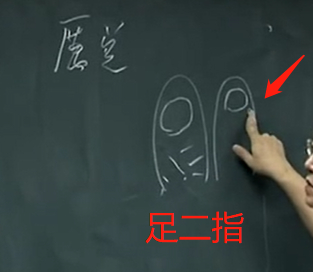 厲兌
足二指